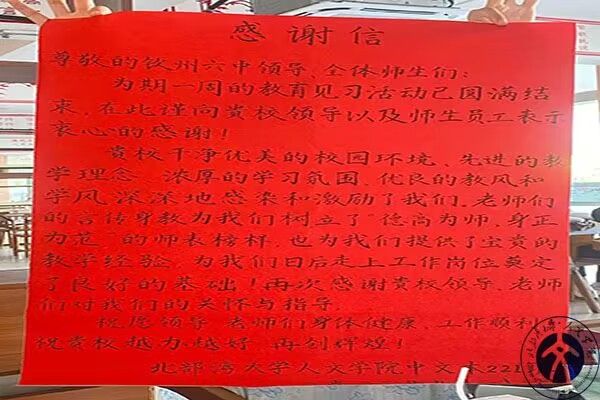 感谢信
尊敬的钦州六中领导、全体师生们:
为期一周的教育见习活动已圆满结
束,在此谨向贵校领导以及师生员工表示
衷心的感谢!
贵校干净优美的校园环境、先进的教
学理念、浓厚的学习氛围、优良的教风和
学风深深地感染和激励了我们,老师们
的言传身教为我们树立了“德高为师,身正
为范”的师表榜样,也为我们提供了宝贵的
教学经验,为我们日后走上工作岗位奠定
了良好的基础!再次感谢贵校领导、老师
们对我们的关怀与指导。
祝愿领导、老师们身体健康、工作顺利
祝贵校越办越好,再创辉煌!
北部湾大学人文学院中文本221